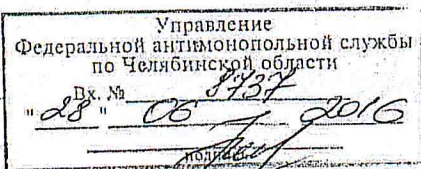 Управление
Федеральной антимонопольной службы
по Челябинской области
Вх. № 8737
"28" 06 2016
подпись